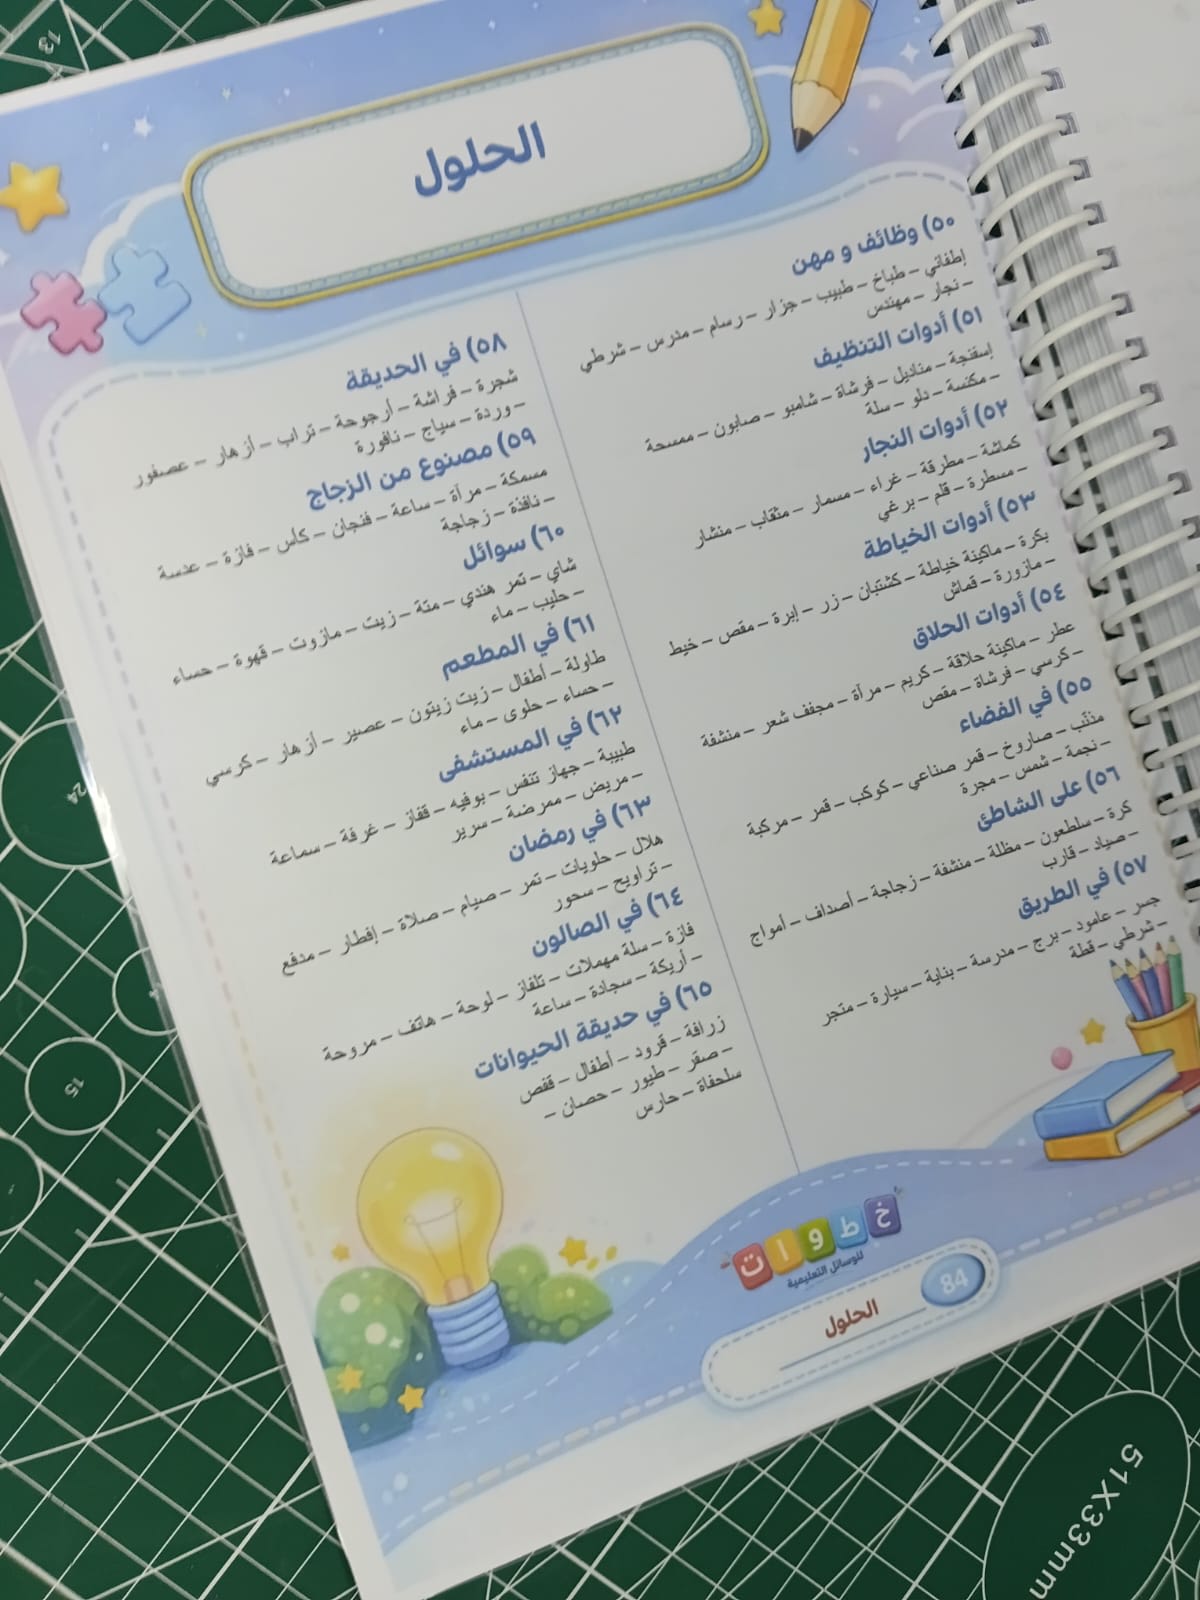 الحلول
٥٠) وظائف و مهن
إطفائي – طباخ – طبيب – جزار – رسام – مدرس – شرطي
– نجار – مهندس
٥١) أدوات التنظيف
إسفنجة – مناديل – فرشاة – شامبو – صابون – ممسحة
– مكنسة – دلو – سلة
٥٢) أدوات النجار
كماشة – مطرقة – غراء – مسمار – مثقاب – منشار
– مسطرة – قلم – برغي
٥٣) أدوات الخياطة
بكرة – ماكينة خياطة – كشتبان – زر – إبرة – مقص – خيط
– مازورة – قماش
٥٤) أدوات الحلاق
عطر – ماكينة حلاقة – كريم – مرآة – مجفف شعر – منشفة
– كرسي – فرشاة – مقص
٥٥) في الفضاء
مذنّب – صاروخ – قمر صناعي – كوكب – قمر – مركبة
– نجمة – شمس – مجرة
٥٦) على الشاطئ
كرة – سلطعون – مظلة – منشفة – زجاجة – أصداف – أمواج
– صياد – قارب
٥٧) في الطريق
جسر – عامود – برج – مدرسة – بناية – سيارة – متجر
– شرطي – قطة
٥٨) في الحديقة
شجرة – فراشة – أرجوحة – تراب – أزهار – عصفور
– وردة – سياج – نافورة
٥٩) مصنوع من الزجاج
مسمكة – مرآة – ساعة – فنجان – كأس – فازة – عدسة
– نافذة – زجاجة
٦٠) سوائل
شاي – تمر هندي – متة – زيت – مازوت – قهوة – حساء
– حليب – ماء
٦١) في المطعم
طاولة – أطفال – زيت زيتون – عصير – أزهار – كرسي
– حساء – حلوى – ماء
٦٢) في المستشفى
طبيبة – جهاز تنفس – بوفيه – قفاز – غرفة – سماعة
– مريض – ممرضة – سرير
٦٣) في رمضان
هلال – حلويات – تمر – صيام – صلاة – إفطار – مدفع
– تراويح – سحور
٦٤) في الصالون
فازة – سلة مهملات – تلفاز – لوحة – هاتف – مروحة
– أريكة – سجادة – ساعة
٦٥) في حديقة الحيوانات
زرافة – قرود – أطفال – قفص
– صقر – طيور – حصان –
سلحفاة – حارس
خطوات
للوسائل التعليمية
84
الحلول
13
24
15
51X33mm